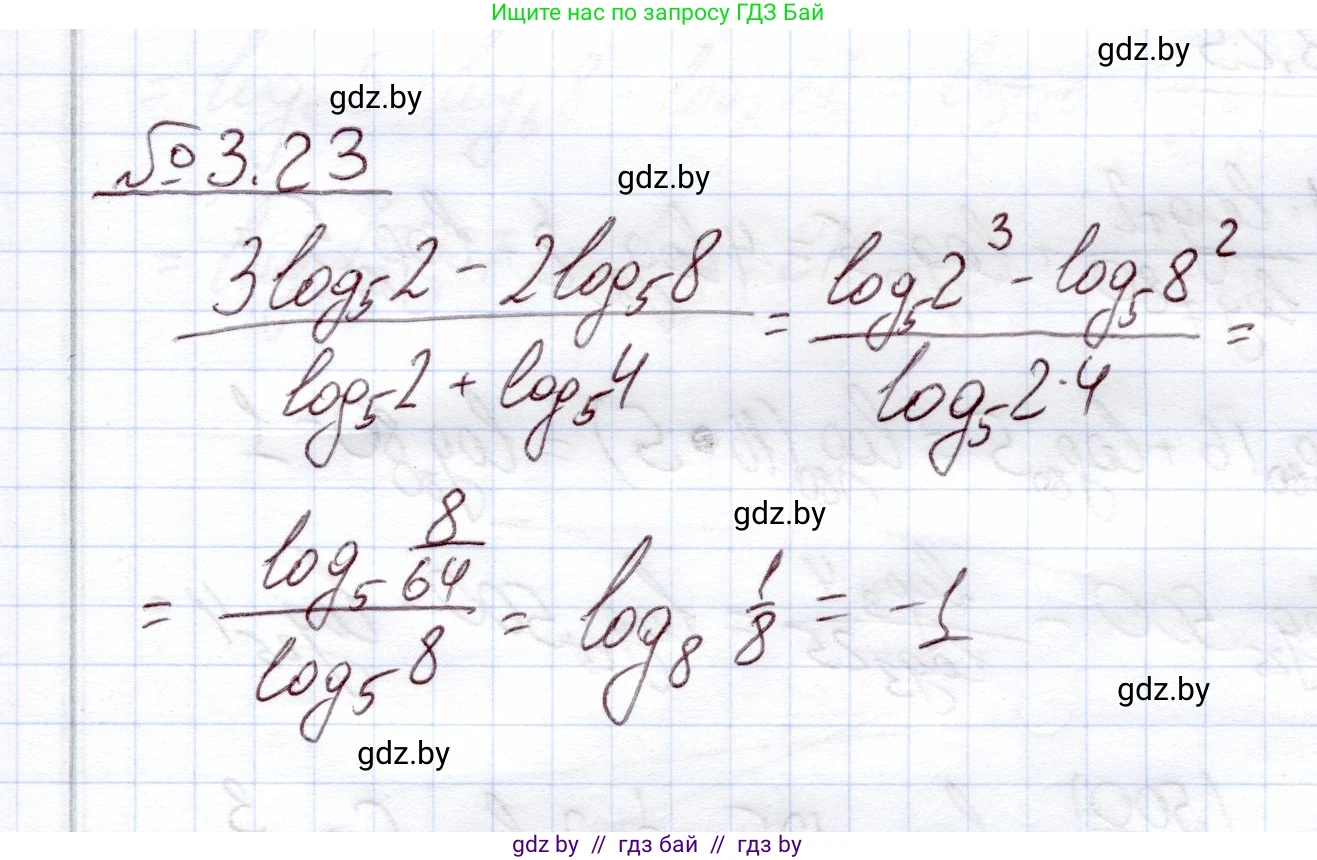 Ищите нас по запросу ГДЗ Бай
gdz.by
gdz.by
№ 3.23
gdz.by
(3log₅2 - 2log₅8)/(log₅2 + log₅4) = (log₅2³ - log₅8²)/(log₅2·4) =
= (log₅ 8/64)/(log₅8) = log₈ 1/8 = -1
gdz.by
gdz.by
gdz.by
gdz by // гдз бай // гдз by